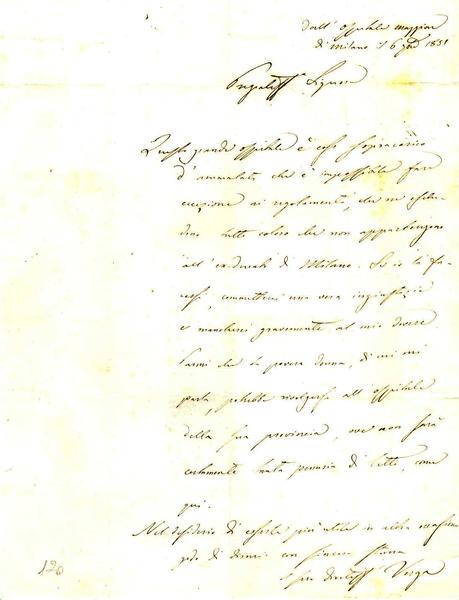 Dall'Ospitale maggiore
di Milano il 6 1851
Pregiatiss Signora
Questo grande ospitale è così sopracarico
d'ammalati, che è impossibile fare
eccezione ai regolamenti, che ne esclu-
dono tutti coloro che non appartengono
all' di Milano. Se io la fa-
cessi, commetterei una vera ingiustizia
e mancherei gravemente al mio dovere.
Parmi che la povera donna, di cui mi
parla, potrebbe rivolgersi all'ospitale
della sua provincia, ove non sarà
certamente tanta penuria di letti, come
qui.
Nel desiderio di esserle più utile in altra occasione
godo di dirmi con sincera stima
Suo Verga
120